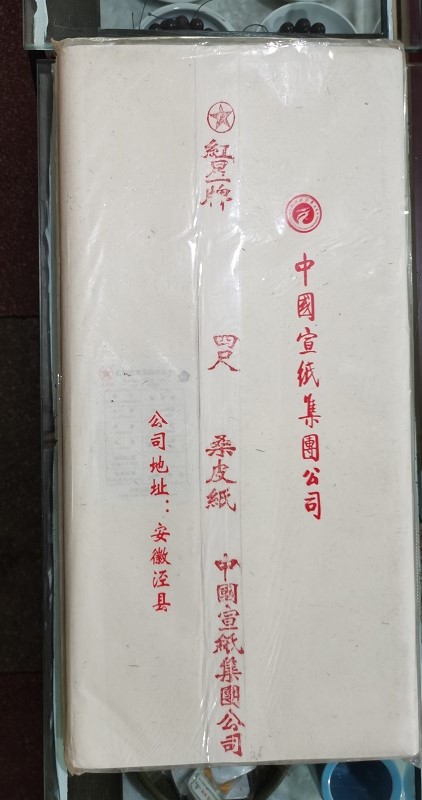 中國宣紙集團公司
紅星牌
四尺
桑皮紙
中國宣紙集團公司
公司地址：安徽泾县